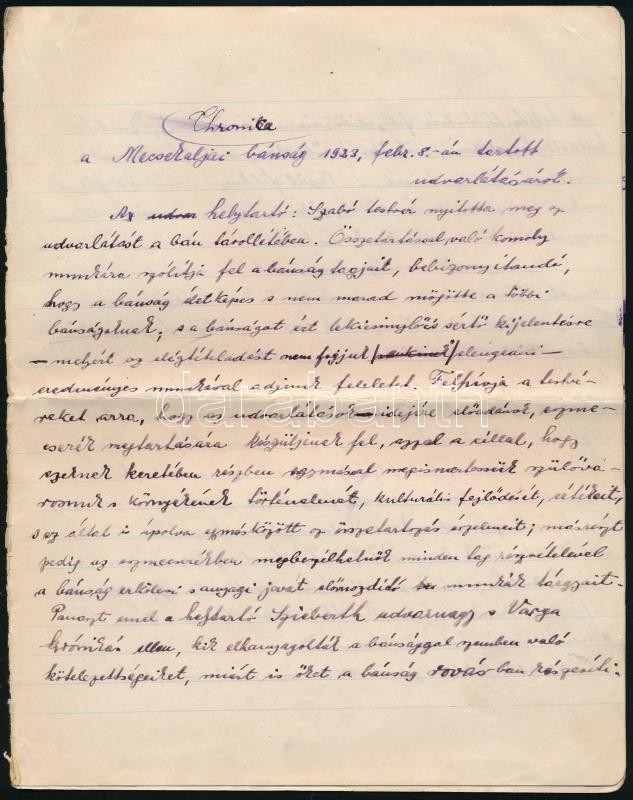 Chronika
a Mecsekaljai bánság 1923, febr. 8.-án tartott
udvarlátásáról.
Az udvar helytartó: Szabó testvér nyitotta meg az
udvarlátást a bán távollétében. Összetartással való komoly
munkára szólítja fel a bánság tagjait, bebizonyítandó,
hogy a bánság életképes s nem marad mögötte a többi
bánságoknak; s a bánságot ért lekicsinylő és sértő kijelentésre
– melyért az elégtételadást nem fogjuk elengedni –
eredményes munkával adjunk feleletet. Felhívja a testvé-
reket arra, hogy az udvarlátások idejére előadások, eszme-
cserék megtartására készüljenek fel, azzal a céllal, hogy
ezeknek keretében részben egymással megismertessük szülővá-
rosunk s környékének történelmét, kulturális fejlődését, értékeit,
s ez által is ápolva egymásközött az összetartozás érzelmeit; másrészt
pedig az eszmecserékben megbeszélhetnők minden tag részvételével
a bánság erkölcsi s anyagi javát előmozdító munkák tárgyait.
Panaszt emel a helytartó Szieberth udvarnagy s Varga
krónikás ellen, kik elhanyagolták a bánsággal szemben való
kötelezettségeiket, miért is őket a bánság rovásban részesíti.
darabanth